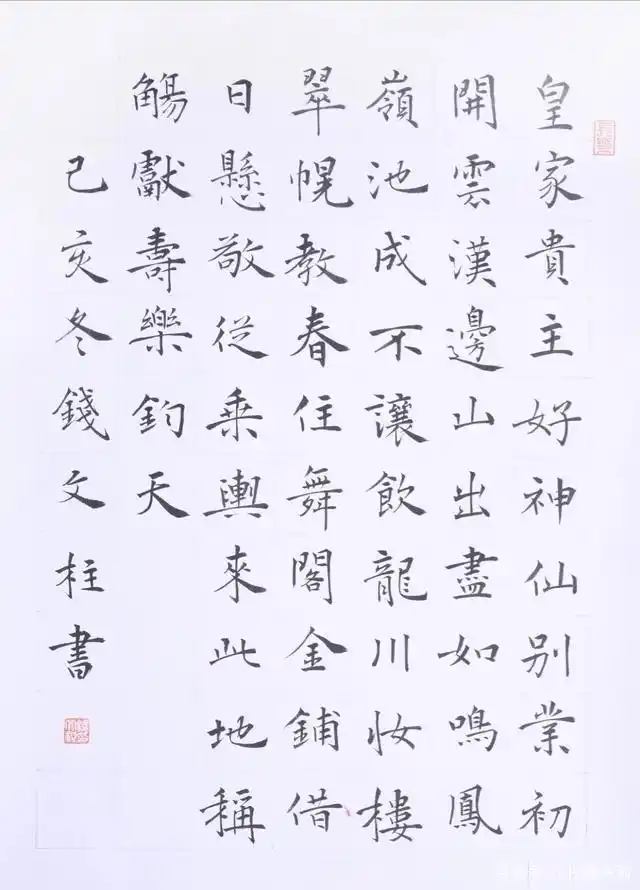 皇家貴主好神仙别業初
開雲漢邊山出盡如鳴鳳
嶺池成不讓飲龍川妝樓
翠幌教春住舞閣金鋪借
日懸敬從乘輿來此地稱
觴獻壽樂鈞天
己亥冬錢文柱書